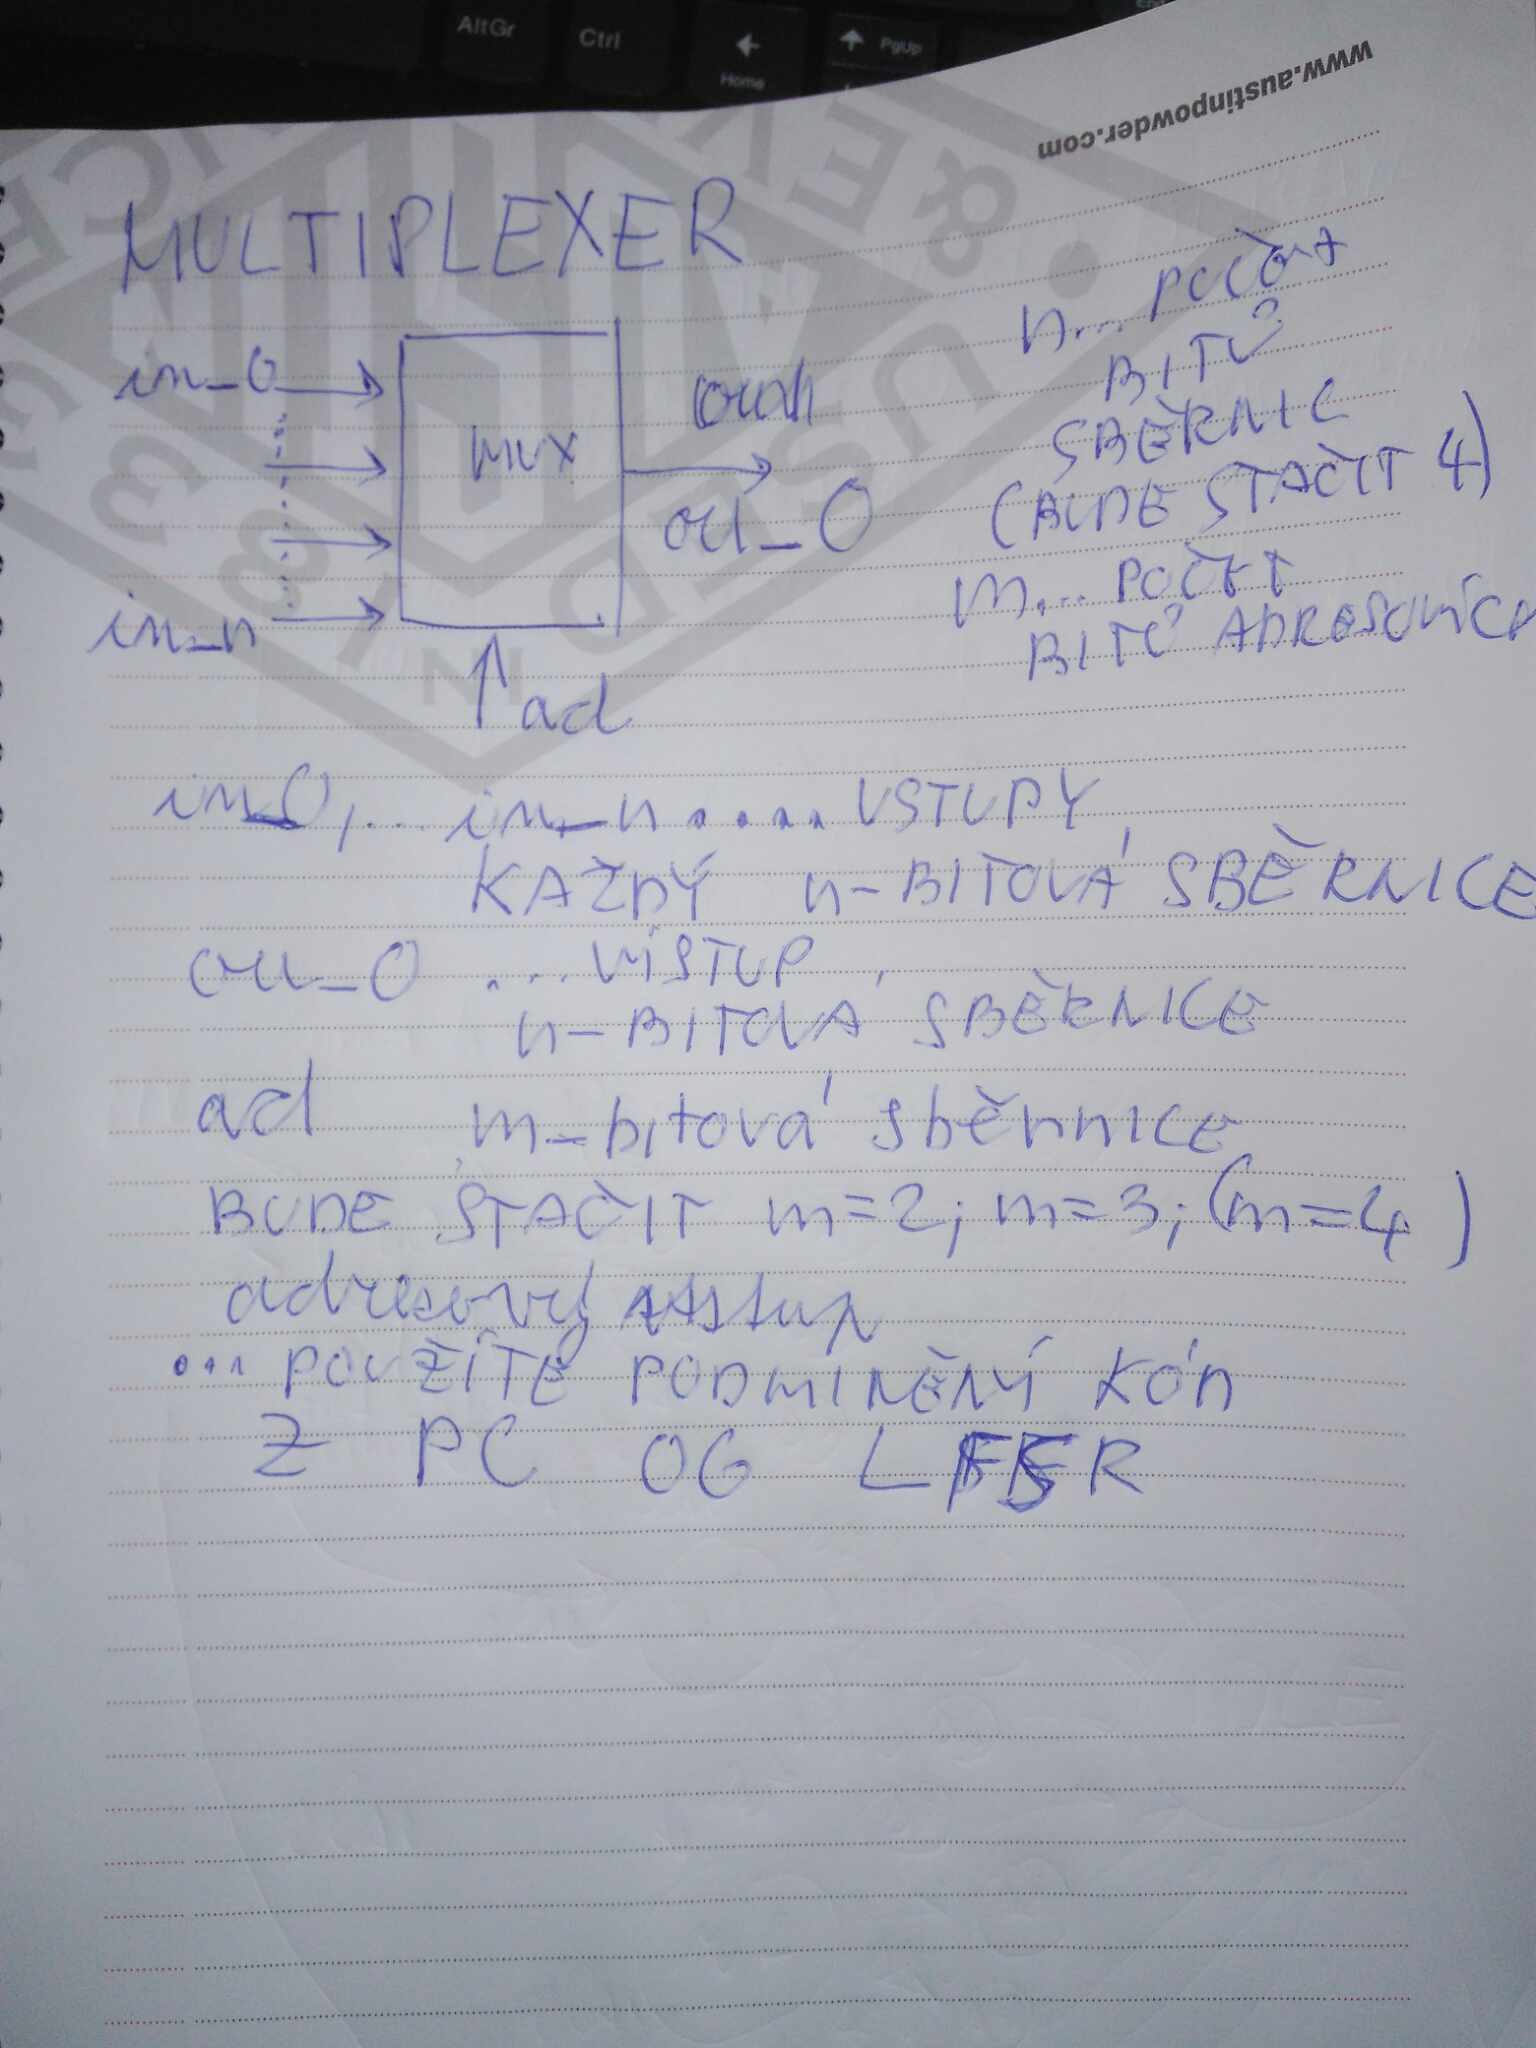 AltGr
Ctrl
Home
PgUp
www.austinpowder.com
MULTIPLEXER
in_0
mux
out_0
in_n
ad
n... počet
BITŮ
SBĚRNIC
(BUDE STAČIT 4)
m... POČET
BITŮ ADRESOVÍCH
in_0,... in_n..... VSTUPY
KAŽDÝ n-BITOVÁ SBĚRNICE
ou_0 ... VÍSTUP
n-BITOVÁ SBĚRNICE
ad m-bitová sběrnice
BUDE STAČIT m=2; m=3; (m=4)
adresový vstup
... POUŽÍTE PODMINĚNÍ KÓD
Z PC OG LFSR